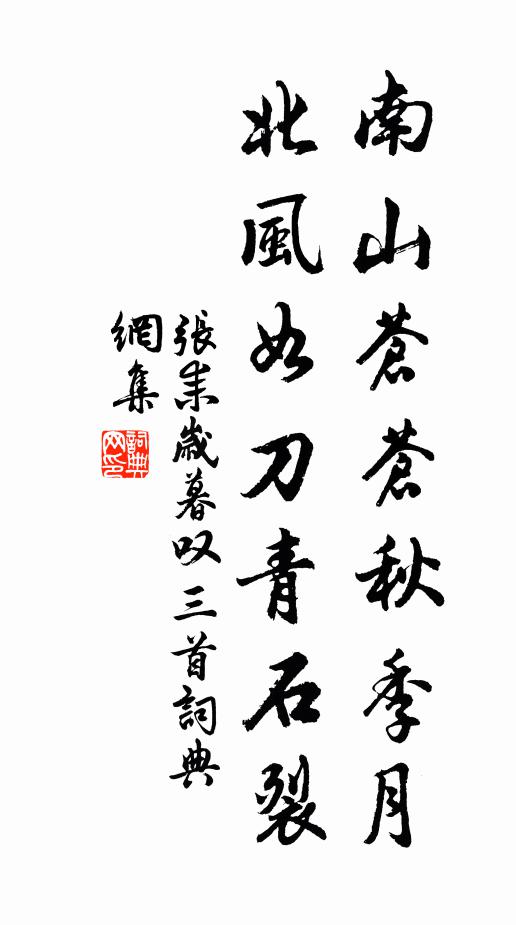 南山蒼蒼秋季月
北風如刀青石裂
張耒歲暮叹三首詞典
網集
詞典
网印